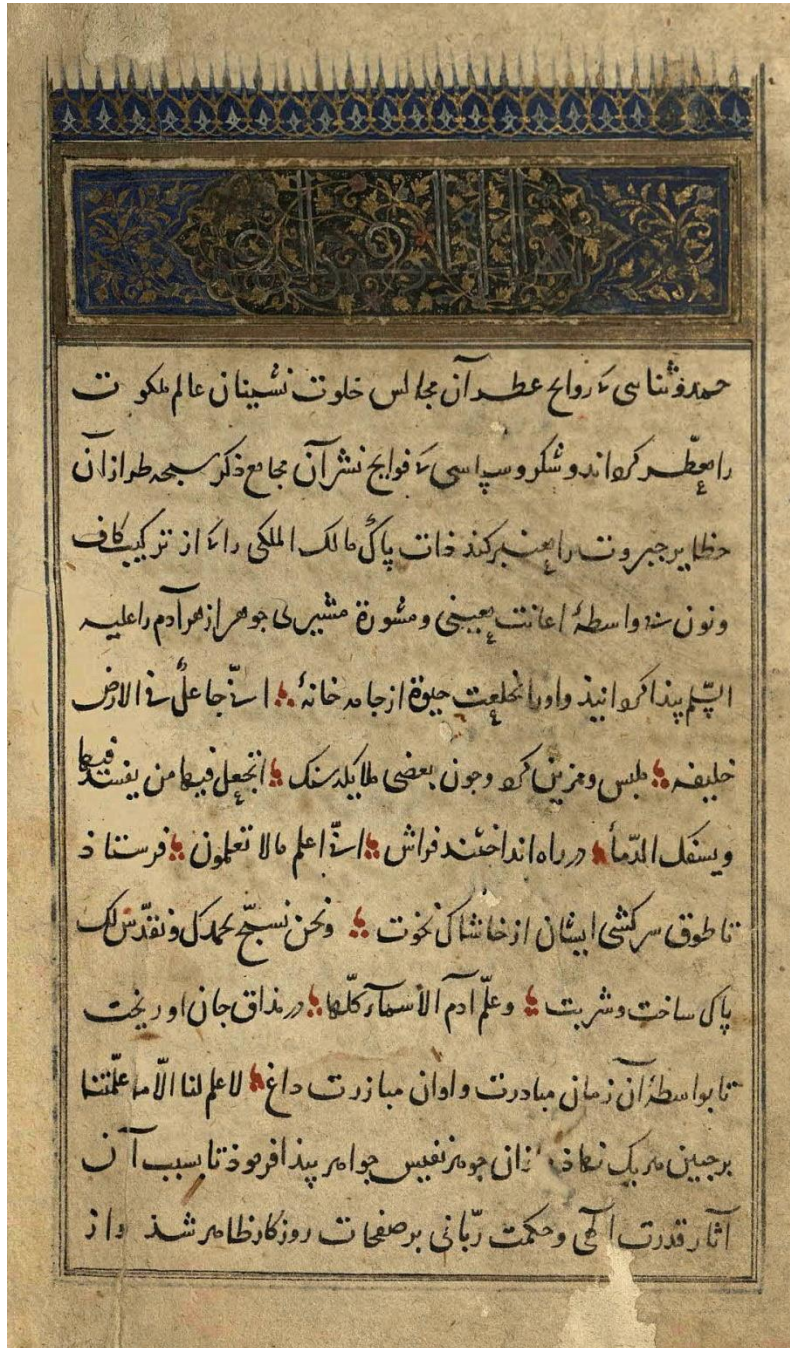 بسم الله الرحمن الرحیم
حمد وثناسی که روایح عطر آن مجالس خلوت نشینان عالم ملکوت
را معطّر کرداند و شکر و سپاسی که فوایح نشر آن مجامع ذکر سبحه طرازان
حظایر جبروت را معنبر کند ذات پاک مالک الملکی را که از ترکیب کاف
ونون نه واسطهٔ اعانت معینی و مشورة مشیری جوهر ازهر آدم را علیه
السّلم پیذا کردانیذ و اورا بخلعت حیوة از جامه خانهٔ انّی جاعلٌ فی الارض
خلیفه ملبس و مزین کرد و جون بعضی ملایکه سنک اتجعل فیها من یفسد فیها
ویسفک الدّمأ در راه انداختند فراش انّی اعلم مالا تعلمون فرستاذ
تا طوق سرکشی ایشان از خاشاک نخوت ونحن نسبّح بحمدک ونقدّس لک
پاک ساخت و شربت وعلّم آدم الأسمآء کلّها در مذاق جان او ریخت
تا بواسطهٔ آن زمان مبادرت و اوان مبارزت داغ لا علم لنا الّا ما علّمتنا
بر جبین هر یک نهاذ ازان جوهر نفیس جواهر پیذا فرموذ تا بسبب آن
آثار قدرت الٓهی وحکمت ربّانی بر صفحات روزکار ظاهر شذ واز